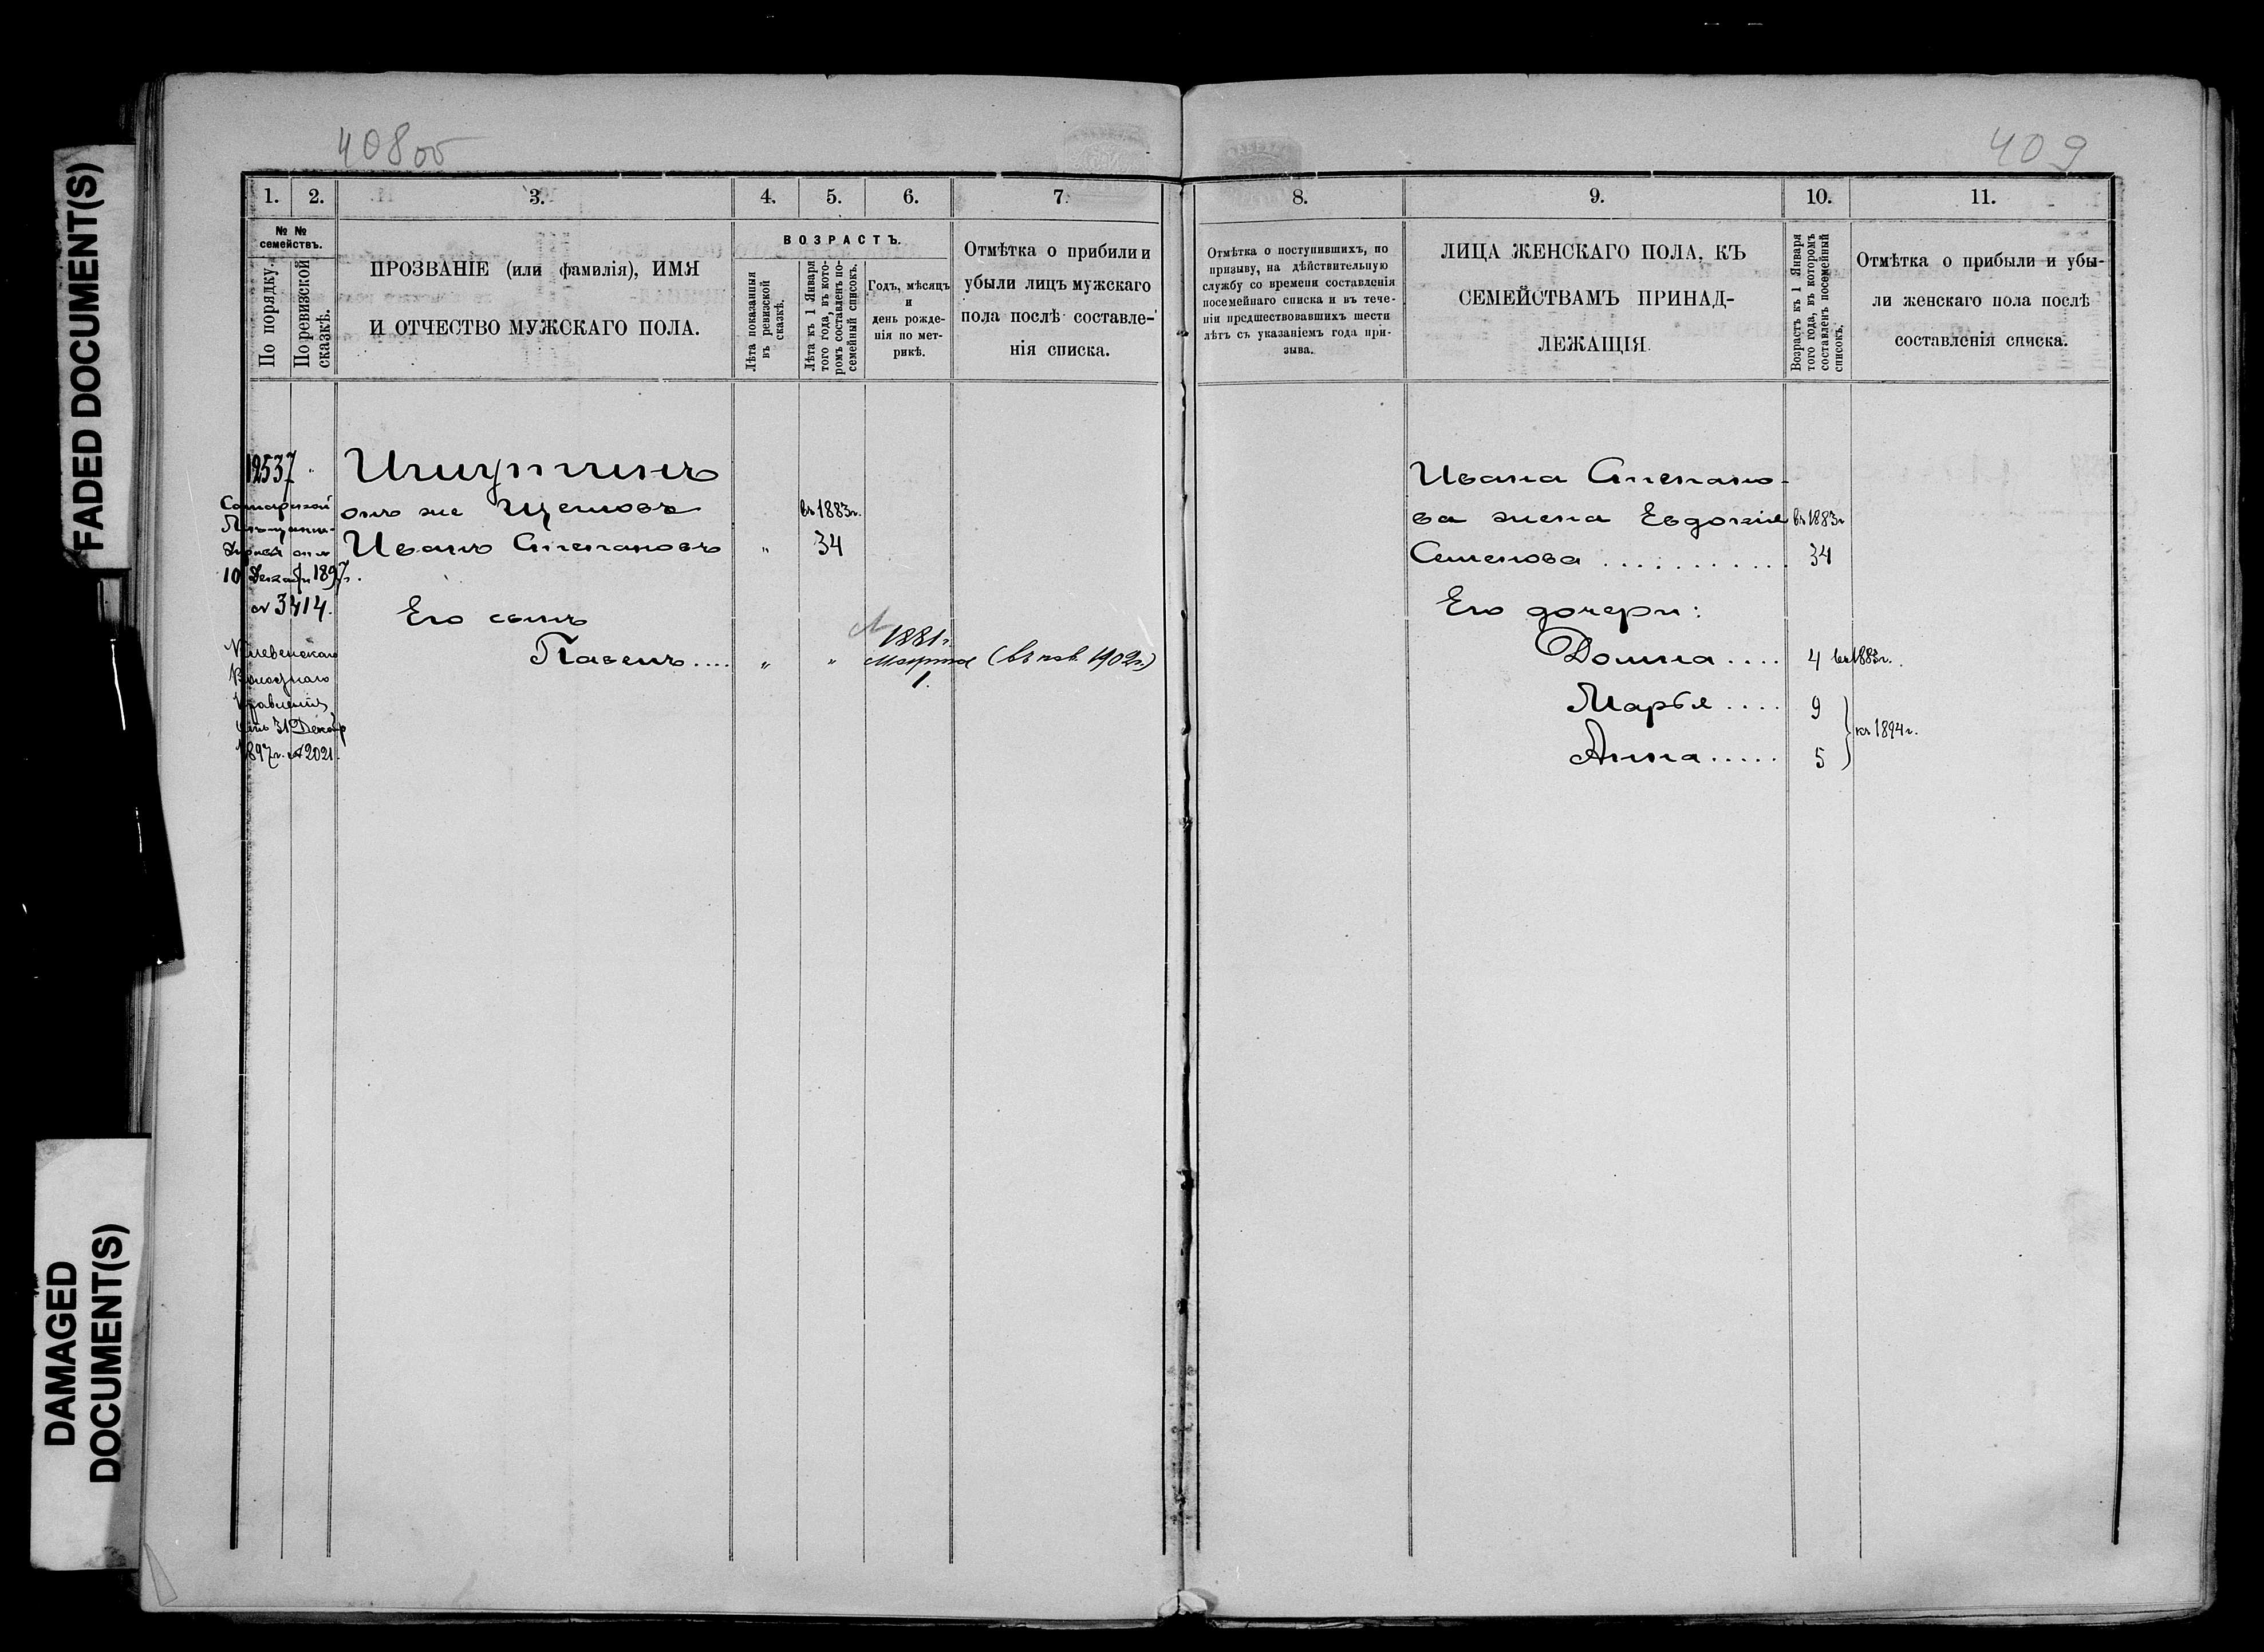 FADED DOCUMENT(S)
DAMAGED
DOCUMENT(S)
408об
1. 2. 3. 4. 5. 6. 7.
№ № семействъ.
По порядку.
По ревизской сказкѣ.
ПРОЗВАНІЕ (или фамилія), ИМЯ
И ОТЧЕСТВО МУЖСКАГО ПОЛА.
ВОЗРАСТЪ.
Лѣта показанныя
въ ревизской
сказкѣ.
Лѣта къ 1 Января
того года, въ кото-
ромъ составленъ по-
семейный списокъ.
Годъ, мѣсяцъ
и
день рожде-
нія по мет-
рикѣ.
Отмѣтка о прибыли и
убыли лицъ мужскаго
пола послѣ составле-
нія списка.
12537 "
Самарской
Управы отъ
10 Декабря 1897г.
№ 3414.
Волостнаго
Правленія
отъ 31 Декабр
1897г. № 2021.
Ишутинъ
онъ же Щеловъ
въ 1883г.
Иванъ Степановъ " 34
Его сынъ
Павелъ .... " "
1881г.
Марта
1.
(въ пов. 1902г.)
409
8. 9. 10. 11.
Отмѣтка о поступившихъ, по
призыву, на дѣйствительную
службу со времени составленія
посемейнаго списка и въ тече-
ніи предшествовавшихъ шести
лѣтъ съ указаніемъ года при-
зыва.
ЛИЦА ЖЕНСКАГО ПОЛА, КЪ
СЕМЕЙСТВАМЪ ПРИНАД-
ЛЕЖАЩІЯ.
Возрастъ къ 1 Января
того года, въ которомъ
составленъ посемейный
списокъ.
Отмѣтка о прибыли и убы-
ли женскаго пола послѣ
составленія списка.
Ивана Степано-
ва жена Евдокія въ 1883г
Семенова ............ 34
Его дочери:
Домна .... 4 въ 1883г.
Марья .... 9
къ 1894г.
Анна ..... 5